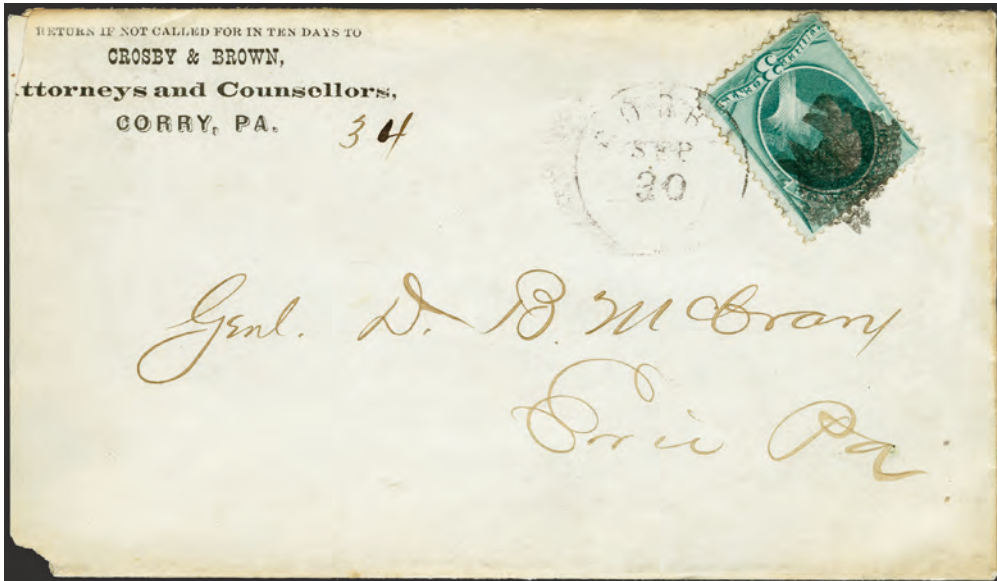 RETURN IF NOT CALLED FOR IN TEN DAYS TO
CROSBY & BROWN,
ttorneys and Counsellors,
CORRY, PA.
34
SEP
20
Genl. D. B. McCrary
Erie Pa